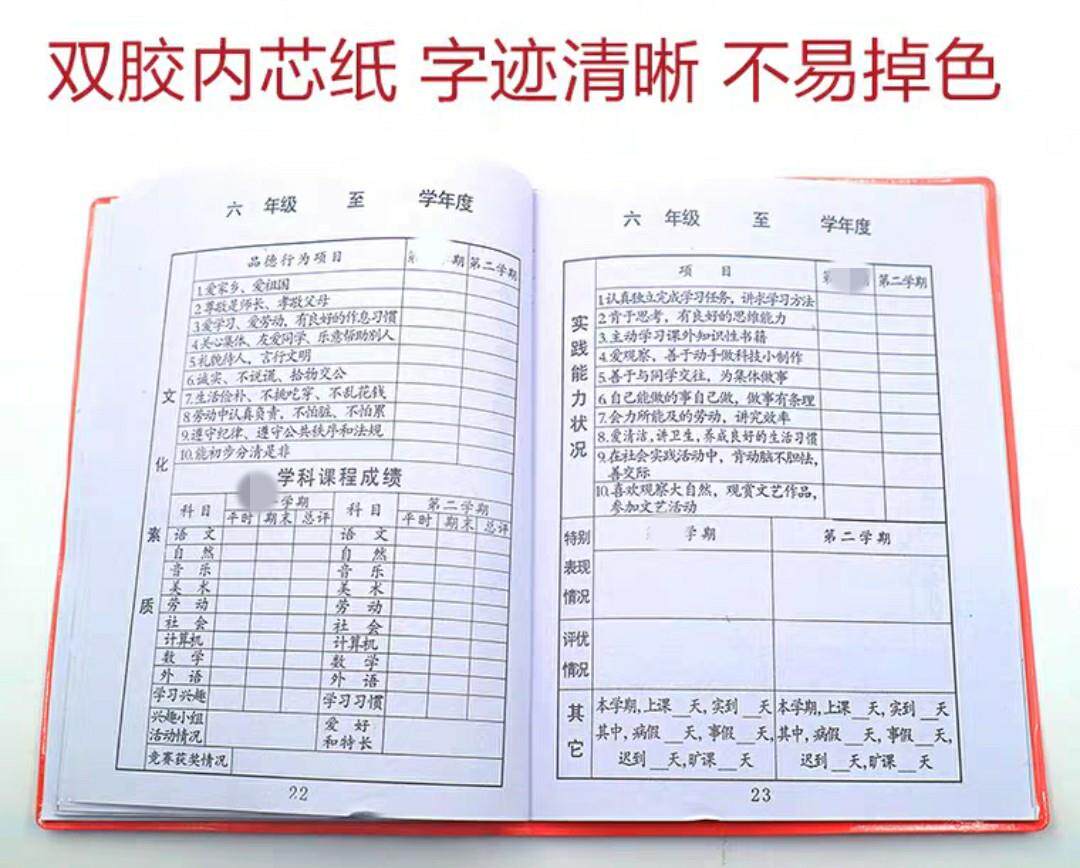 双胶内芯纸 字迹清晰 不易掉色
六 年级 至 学年度
文化素质
品德行为项目 期 第二学期
1.爱家乡、爱祖国
2.尊敬是师长、孝敬父母
3.爱学习、爱劳动，有良好的作息习惯
4.关心集体、友爱同学、乐意帮助别人
5.礼貌待人，言行文明
6.诚实、不说谎、拾物交公
7.生活俭朴、不挑吃穿、不乱花钱
8.劳动中认真负责，不怕脏、不怕累
9.遵守纪律、遵守公共秩序和法规
10.能初步分清是非
学科课程成绩
科目 学期 科目 第二学期
平时 期末 总评 平时 期末 总评
语文 语文
自然 自然
音乐 音乐
美术 美术
劳动 劳动
社会 社会
计算机 计算机
数学 数学
外语 外语
学习兴趣 学习习惯
兴趣小组 爱好
活动情况 和特长
竞赛获奖情况
22
六 年级 至 学年度
实践能力状况
项目 第 第二学期
1.认真独立完成学习任务，讲求学习方法
2.肯于思考，有良好的思维能力
3.主动学习课外知识性书籍
4.爱观察，善于动手做科技小制作
5.善于与同学交往，为集体做事
6.自己能做的事自己做，做事有条理
7.会力所能及的劳动，讲究效率
8.爱清洁，讲卫生，养成良好的生活习惯
9.在社会实践活动中，肯动脑不胆怯，
善交际
10.喜欢观察大自然，观赏文艺作品，
参加文艺活动
特别 学期 第二学期
表现
情况
评优
情况
其它
本学期，上课__天，实到__天 本学期，上课__天，实到__天
其中，病假__天，事假__天， 其中，病假__天，事假__天，
迟到__天，旷课__天 迟到__天，旷课__天
23